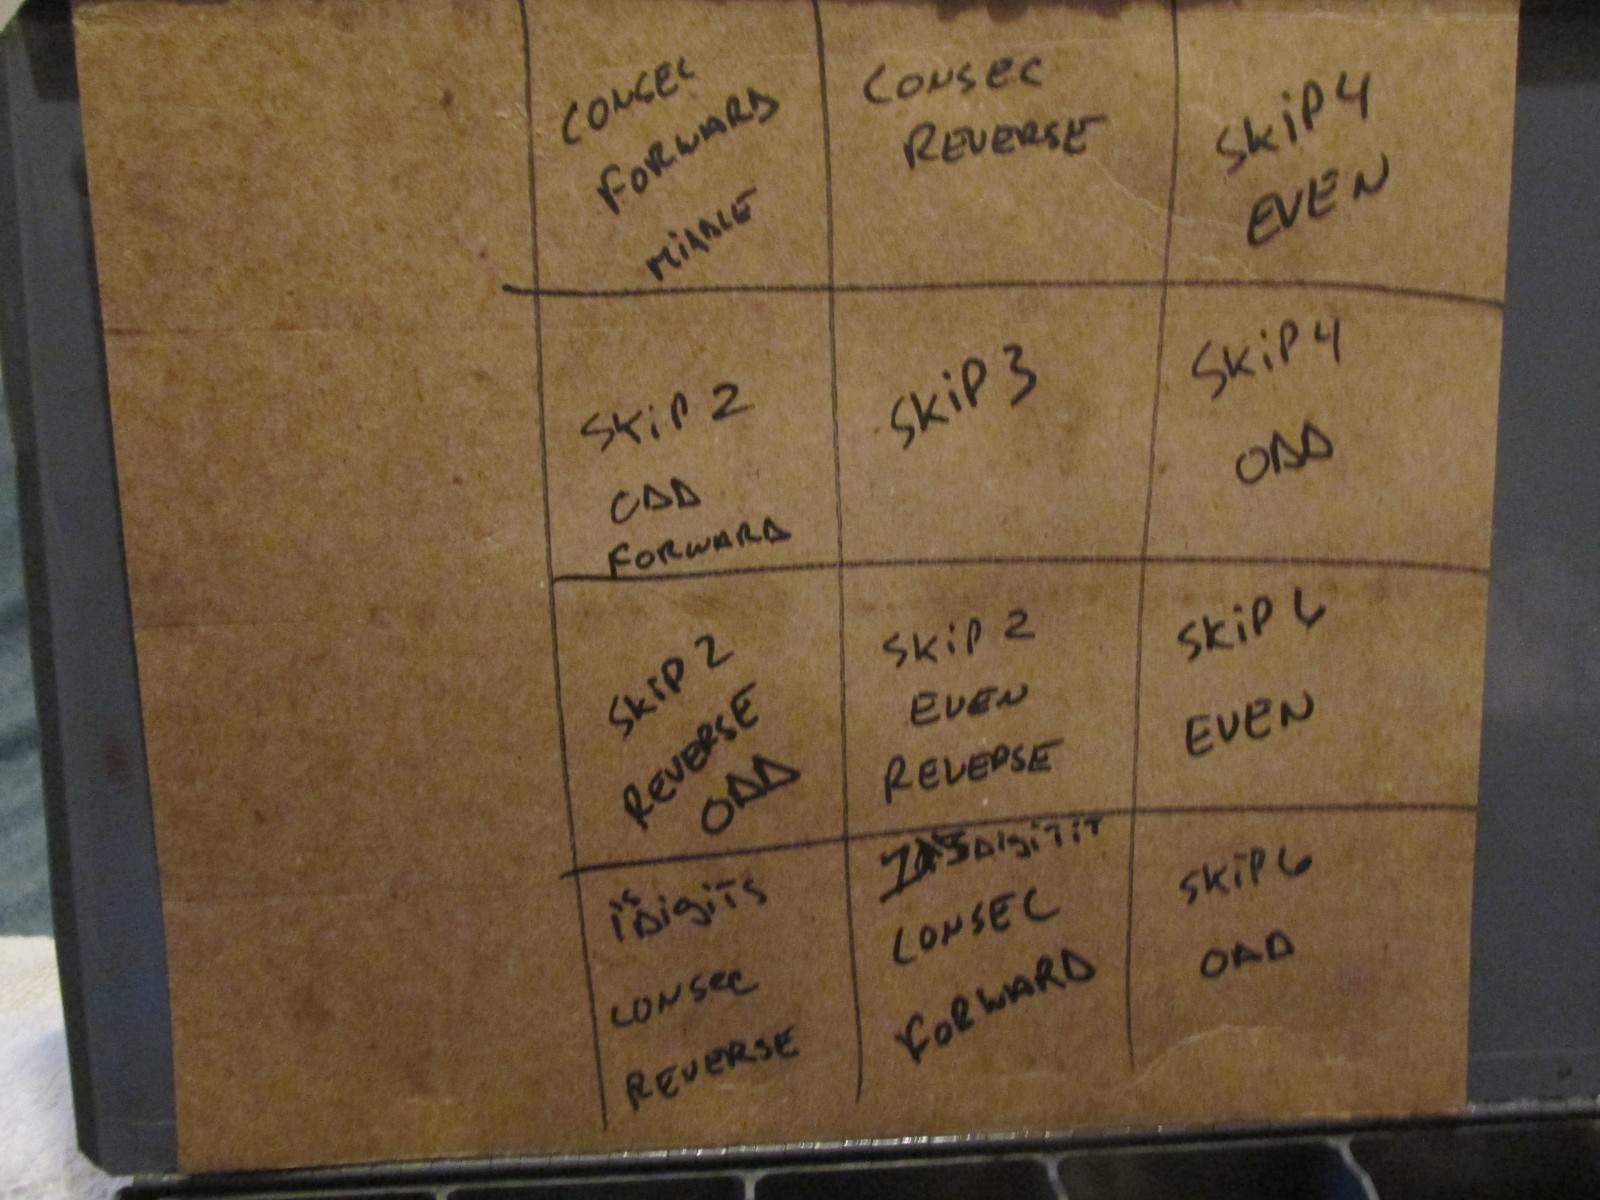 CONSEC
FORWARD
MIDDLE
CONSEC
REVERSE
SKiP 4
EVEN
SKiP 2
ODD
FORWARD
SKiP 3
SKiP 4
ODD
SKiP 2
REVERSE
ODD
SKiP 2
EVEN
REVERSE
SKiP 6
EVEN
DigiTS
CONSEC
REVERSE
CONSEC
FORWARD
SKiP 6
ODD